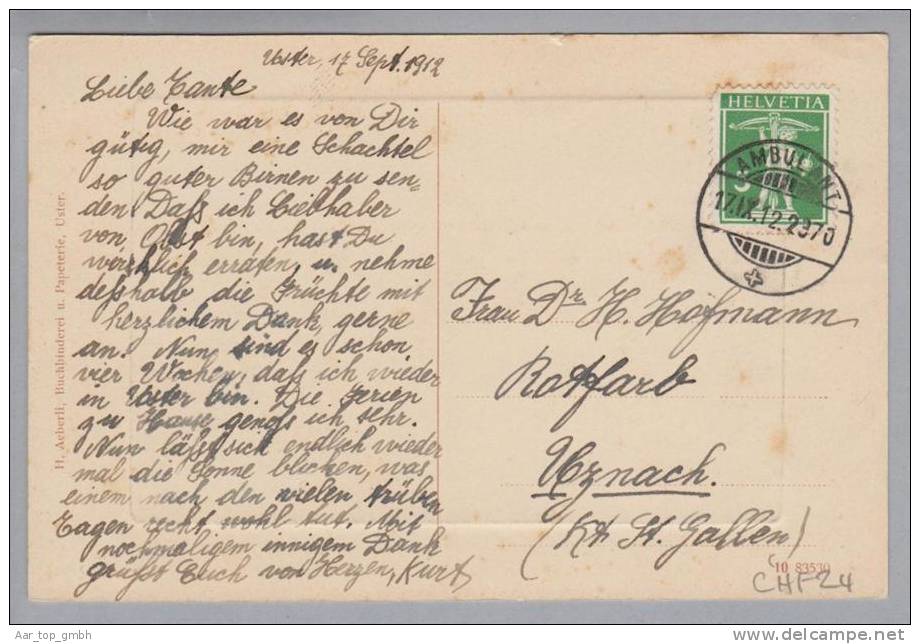 Uster, 17 Sept. 1912
Liebe Tante
Wie war es von Dir
gütig, mir eine Schachtel
so guter Birnen zu sen=
den. Daß ich Liebhaber
von Obst bin, hast Du
wirklich erraten, u. nehme
deßhalb die Früchte mit
herzlichem Dank gerne
an. Nun sind es schon
vier Wochen, daß ich wieder
in Uster bin. Die Ferien
zu Hause genoß ich sehr.
Nun läßt sich endlich wieder
mal die Sonne blicken, was
einem nach den vielen trüben
Tagen recht wohl tut. Mit
nochmaligem innigem Dank
grüßt Euch von Herzen, Kurt
H. Aeberli, Buchbinderei u. Papeterie, Uster.
HELVETIA
5
AMBULANT
17.IX.12.2970
Frau Dr. H. Hofmann
Rotfarb
Uznach.
(Kt. St. Gallen)
10 83530
CHF 24
Aar_top_gmbh
delcampe.net